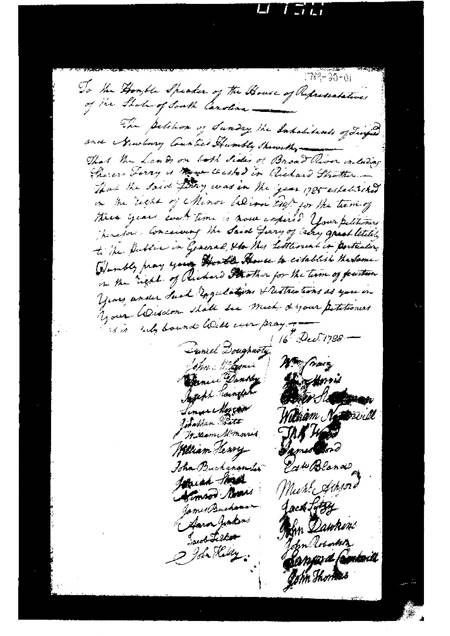 0730
1789-30-01
To the Honble Speaker of the House of Representatives
of the State of South Carolina
The Petition of Sundry the Inhabitants of
and Newbury Counties Humbly Sheweth
That the Lands on both Sides of Broad River including
Ferry is now vested in Richard Strother
That the Said Ferry was in the year 1785 established
in the right of Minor Winn Esqr for the term of
three years which time is now expired Your Petitioners
therefore conceiving the Said Ferry of very great Utility
to the Publick in General, & to this Settlement in particular
Humbly pray your Honble House to establish the same
in the right of Richard Strother for the term of fourteen
Years under Such Regulations & Restrictions as you in
Your Wisdom shall see Meet & your Petitioners
as in duty bound Will ever pray
16th Decr 1788
Daniel Dougharty
John
Daniel Dansby
Joseph
Simon Morgan
Jonathan Pratt
William Mc Morris
William Henry
John Buchanan
Josiah
Nimrod Morris
James Buchanan
Aaron Jenkins
Jacob
John Kelly
Wm Craig
Morris
William
James Bond
Bland
Michl Ashford
Jack
John Dawkins
John Robertson
Sanford
John Thomas